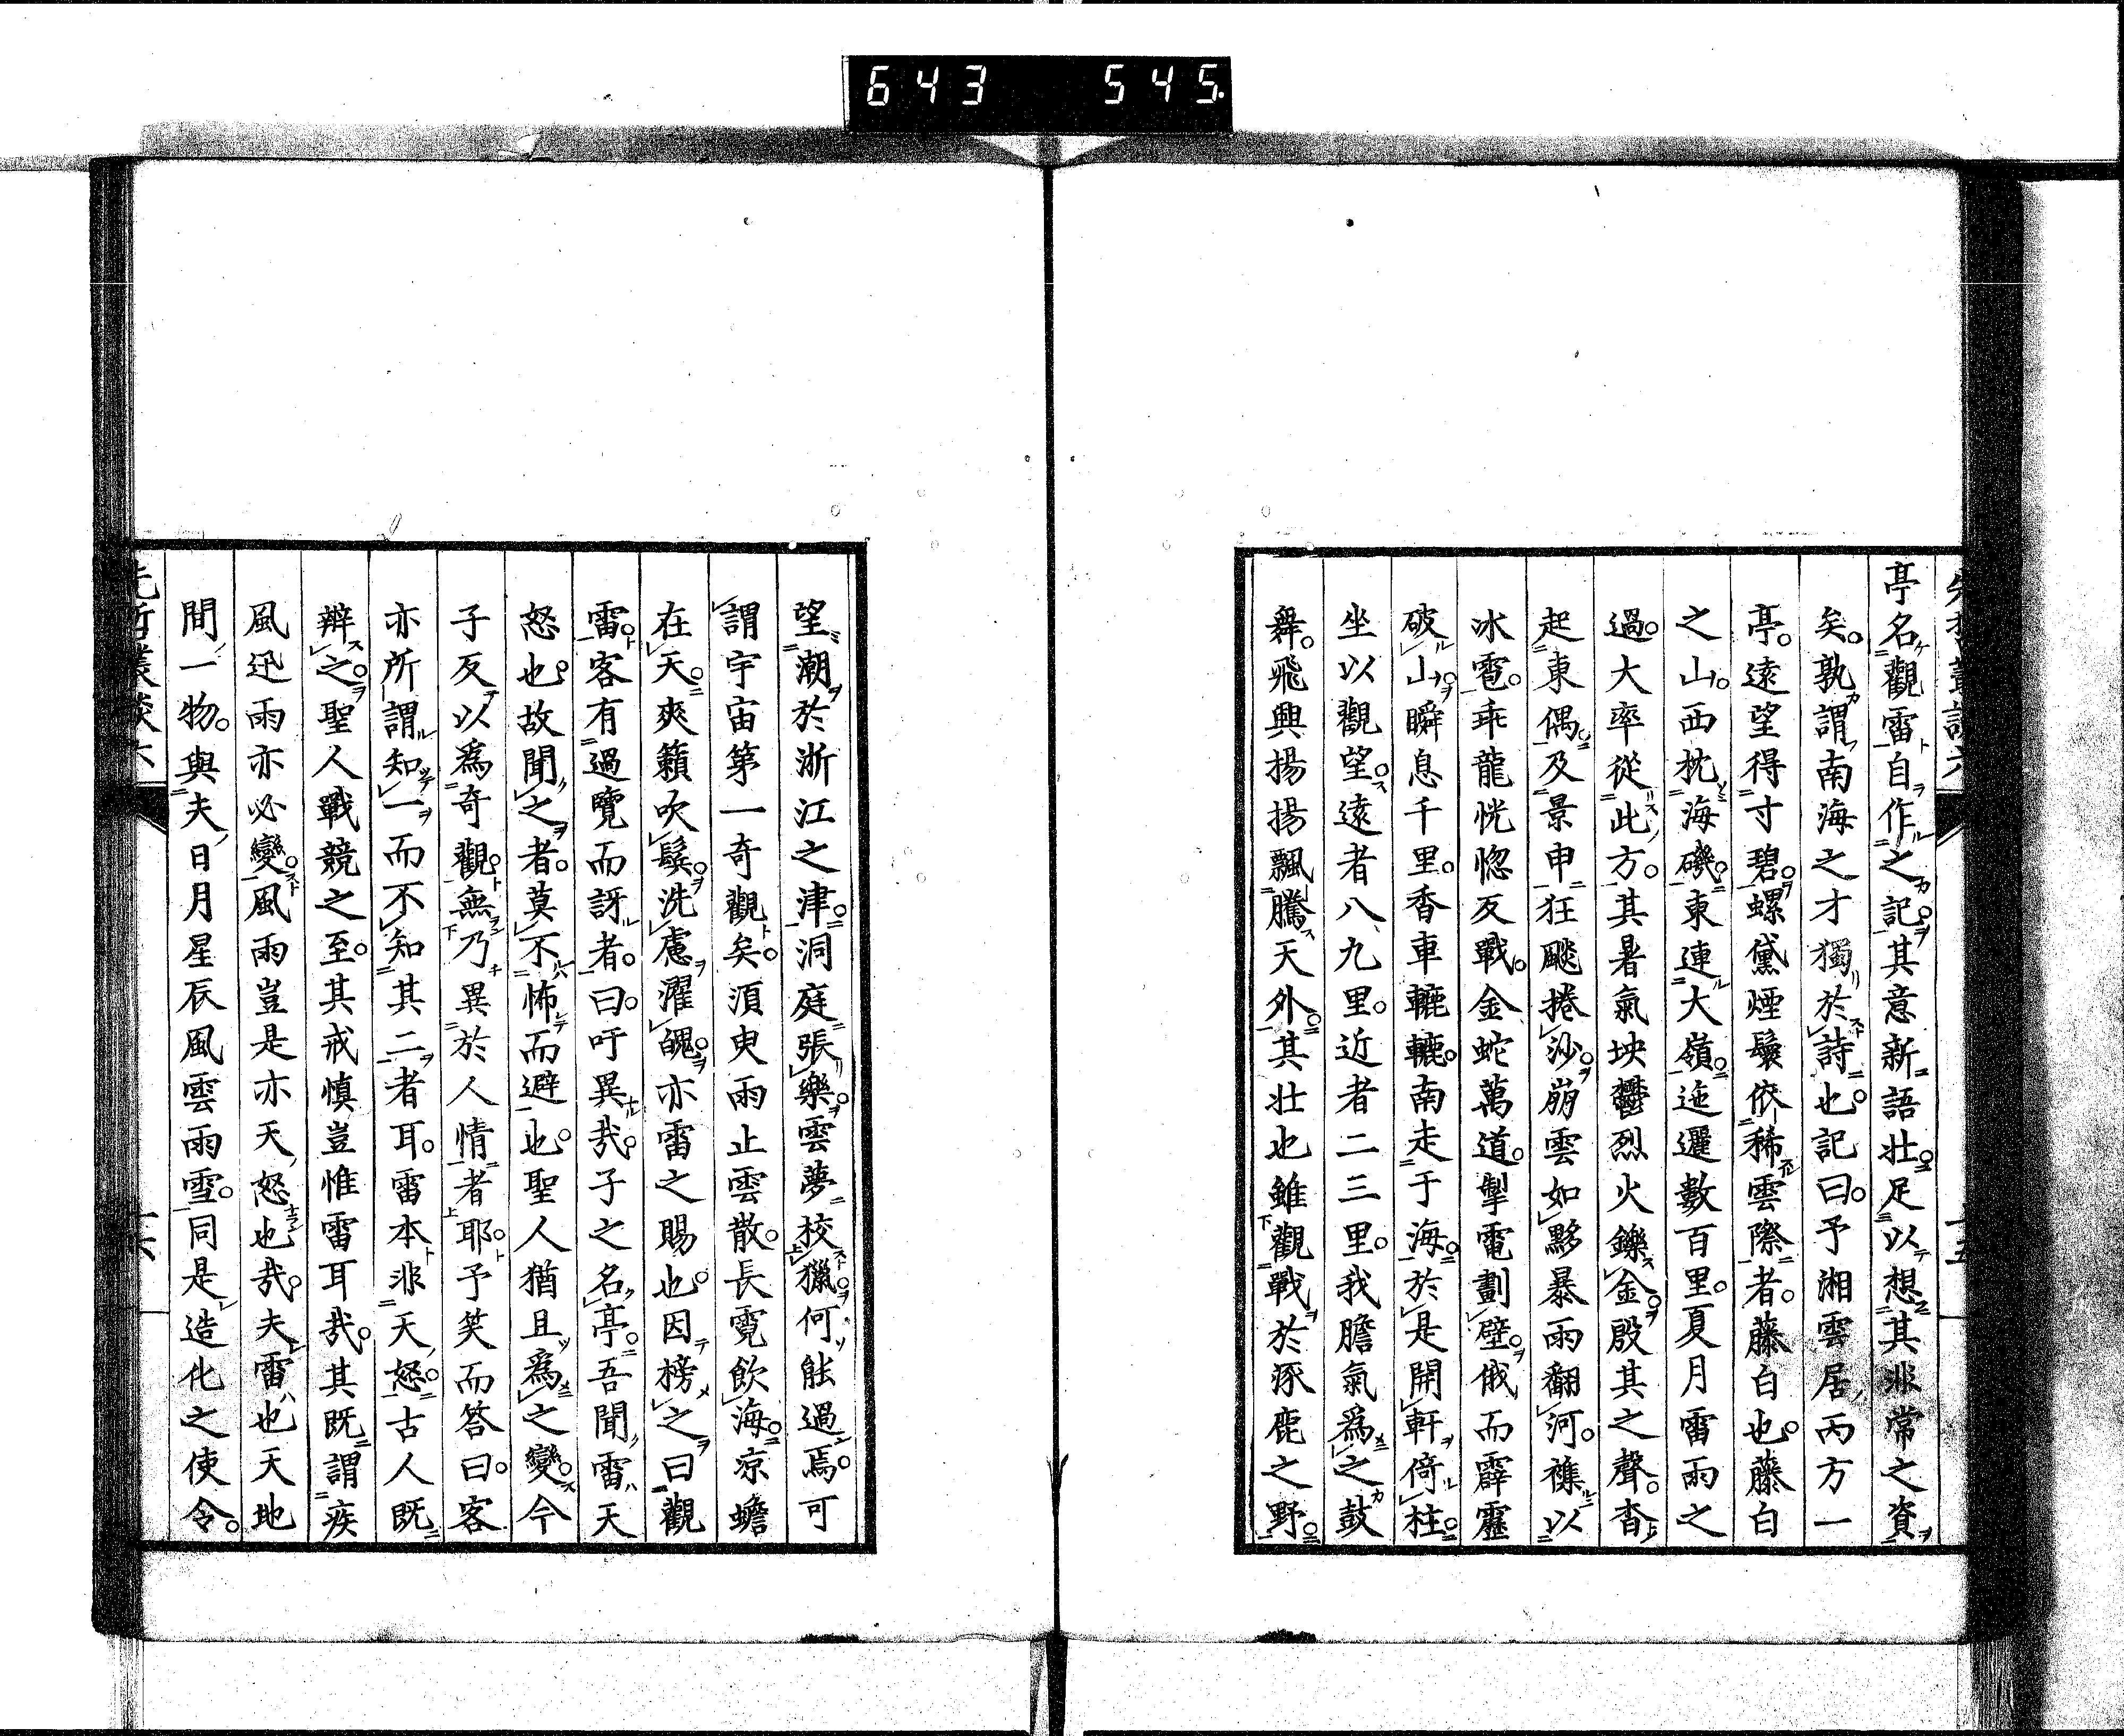 643 545.
亭名觀雷自作之記其意新語壯足以想其非常之資
矣孰謂南海之才獨於詩也記曰予湘雲居丙方一
亭遠望得寸碧螺黛煙鬟依稀雲際者藤白也藤白
之山西枕海磯東連大嶺迤邐數百里夏月雷雨之
過大率從此方其暑氣坱鬱烈火鑠金殷其之聲杳
起東偶及景申狂颷捲沙崩雲如夥暴雨翻河襍以
冰雹乖龍恍惚反戰金蛇萬道掣電劃壁俄而霹靂
破山瞬息千里香車轆轆南走于海於是開軒倚柱
坐以觀望遠者八九里近者二三里我膽氣爲之鼓
舞飛興揚揚飄騰天外其壯也雖觀戰於涿鹿之野
望潮於浙江之津洞庭張樂雲夢校獵何能過焉可
謂宇宙第一奇觀矣須臾雨止雲散長霓飲海凉蟾
在天爽籟吹鬟洗慮濯魄亦雷之賜也因榜之曰觀
雷客有過覽而訝者曰吁異哉子之名亭吾聞雷天
怒也故聞之者莫不怖而避也聖人猶且爲之變今
子反以爲奇觀無乃異於人情者耶予笑而答曰客
亦所謂知一而不知其二者耳雷本非天怒古人既
辨之聖人戰競之至其戒慎豈惟雷耳哉其既謂疾
風迅雨亦必變風雨豈是亦天怒也哉夫雷也天地
間一物與夫日月星辰風雲雨雪同是造化之使令
先哲叢談六